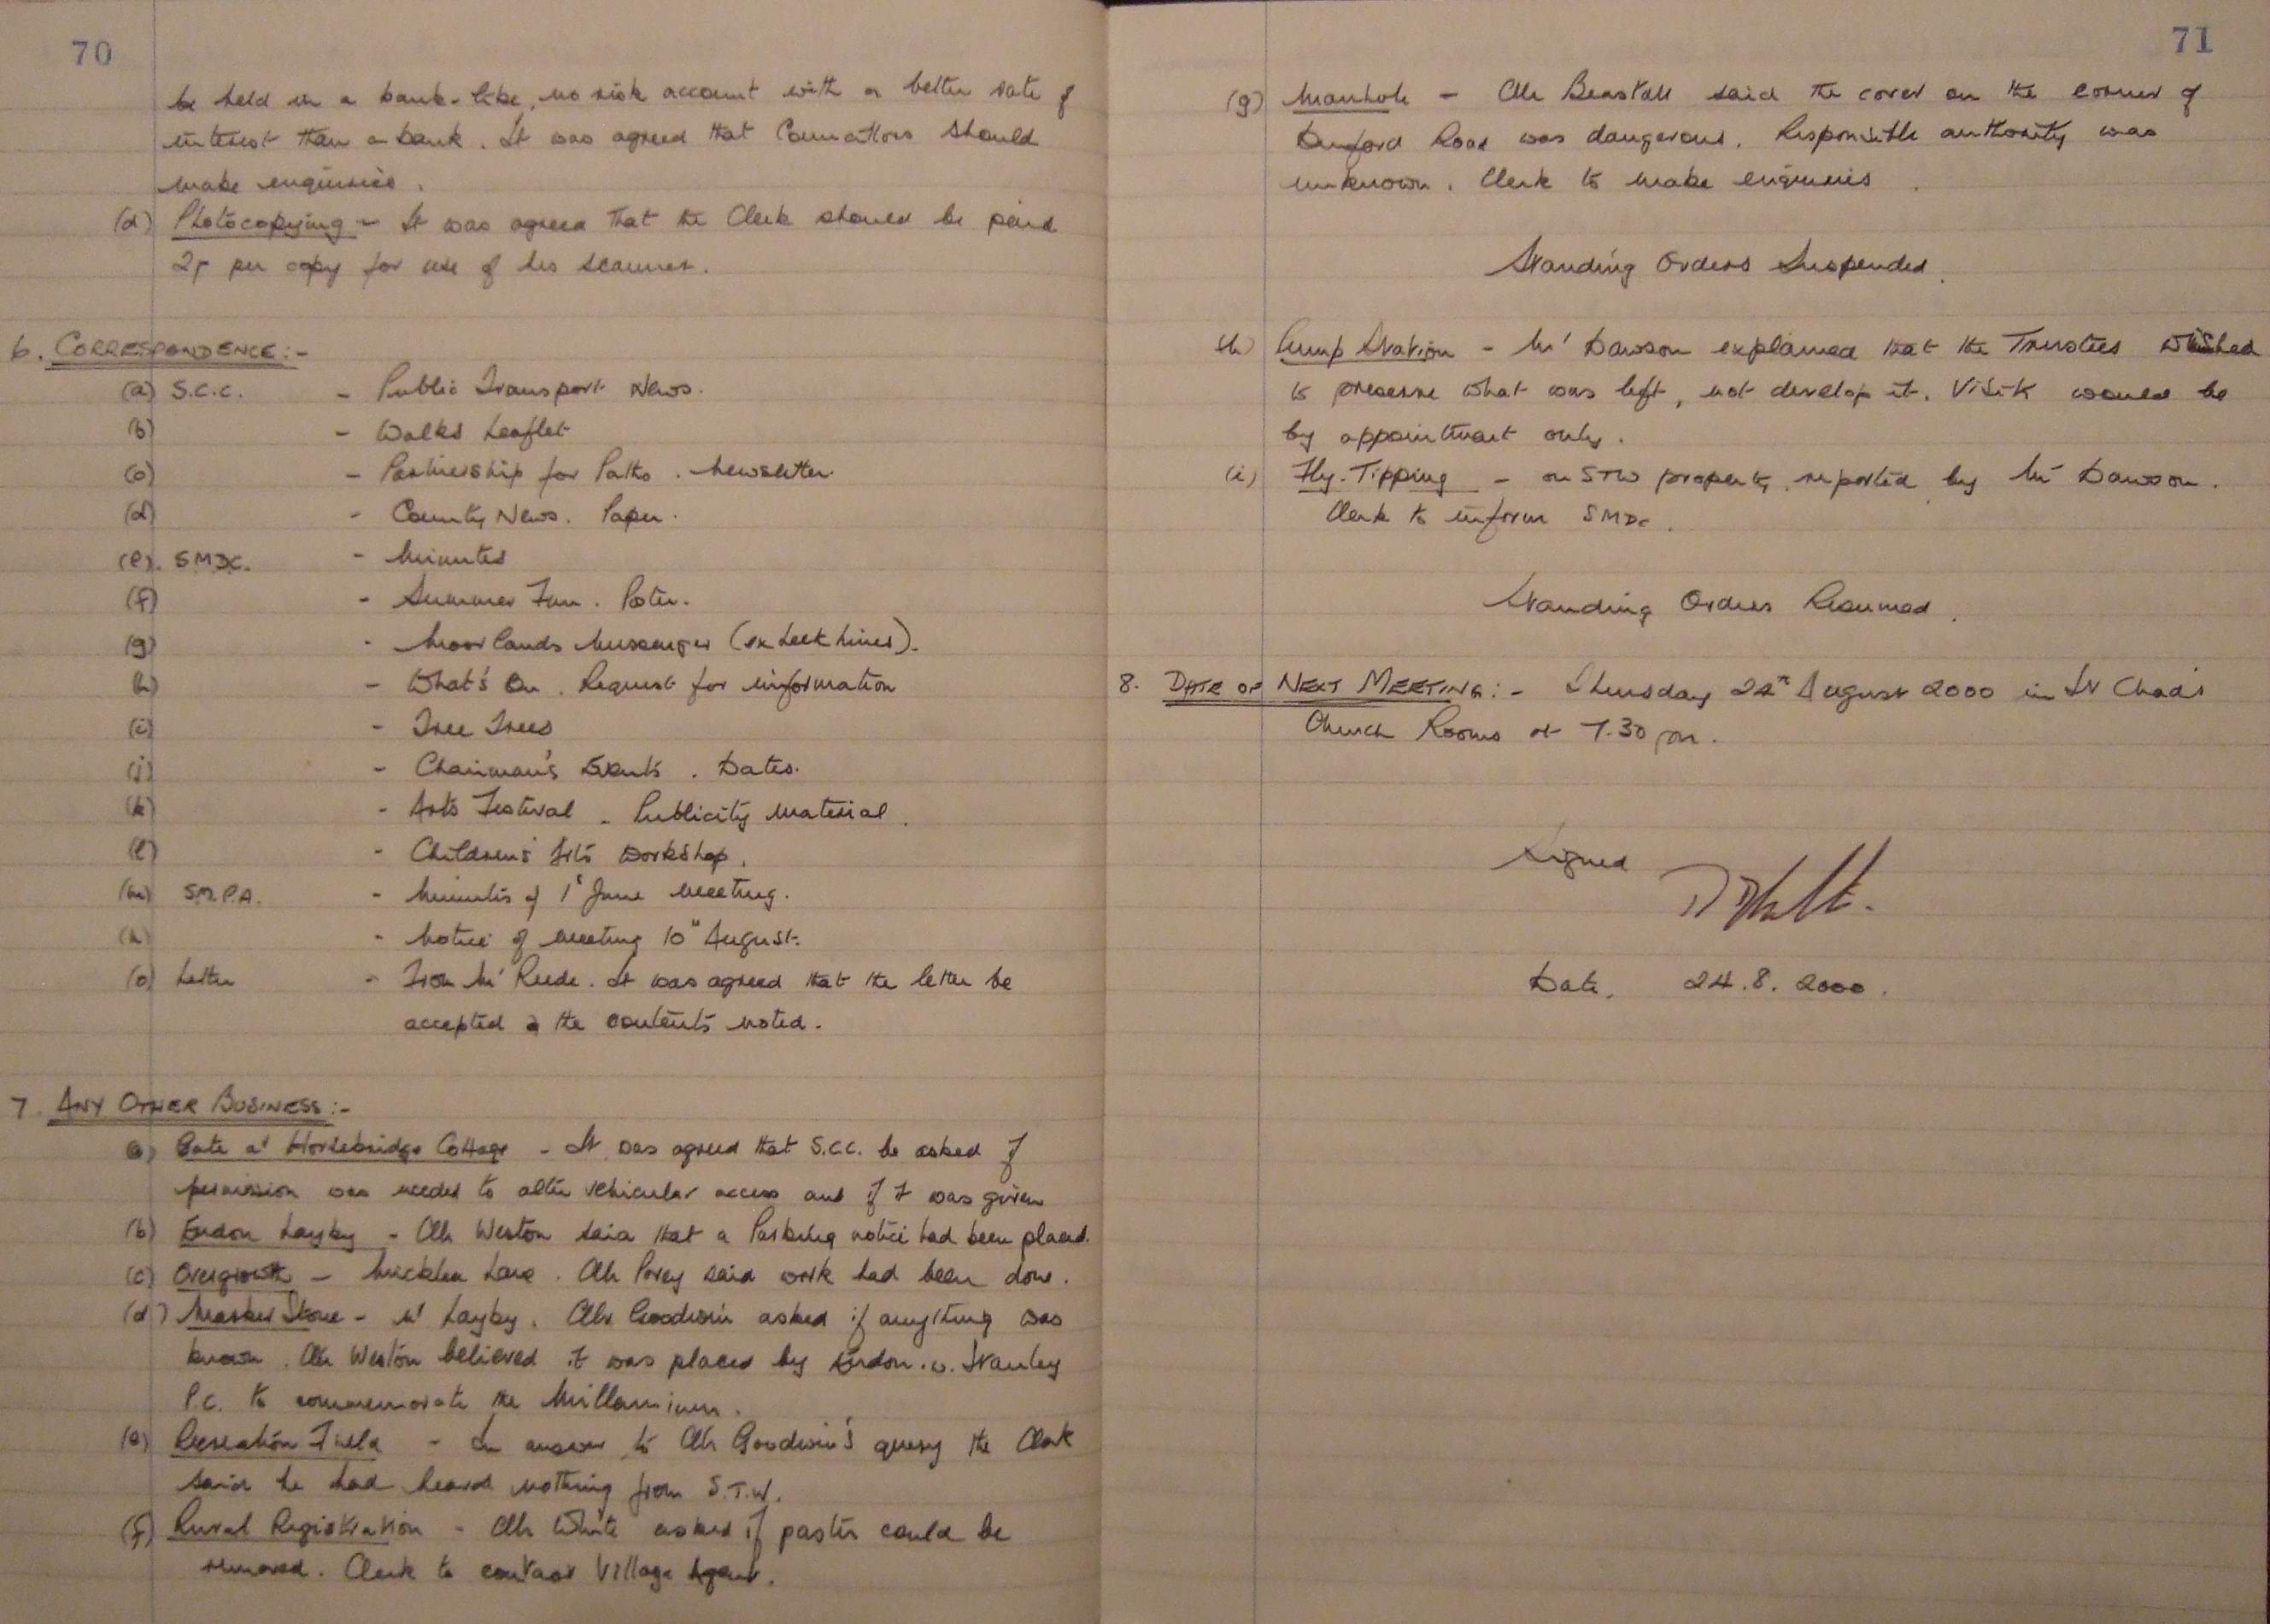 70
be held in a bank-like, no risk account with a better rate of
interest than a bank. It was agreed that Councillors should
make enquiries.
(d) Photocopying - It was agreed that the Clerk should be paid
2p per copy for use of his scanner.
6. CORRESPONDENCE:-
(a) S.C.C. - Public Transport News.
(b) - Walks Leaflet
(c) - Partnership for Paths. Newsletter.
(d) - County News. Paper.
(e). S.M.D.C. - Minutes
(f) - Summer Fun. Poster.
(g) - Moorlands Messenger (ex Leek Lines).
(h) - What's On. Request for information
(i) - Free Trees
(j) - Chairman's Events. Dates.
(k) - Arts Festival - Publicity Material.
(l) - Childrens Arts Workshop.
(m) S.M.P.A. - Minutes of 1st June meeting.
(n) - Notice of meeting 10th August.
(o) Letter - From Mr Reede. It was agreed that the letter be
accepted & the contents noted.
7. ANY OTHER BUSINESS:-
(a) Gate at Horsebridge Cottage - It was agreed that S.C.C. be asked if
permission was needed to alter vehicular access and if it was given
(b) Endon Layby - Cllr Weston said that a Parking notice had been placed.
(c) Overgrowth - Micklea Lane. Cllr Povey said work had been done.
(d) Marker Stone - in Layby. Cllr Goodwin asked if anything was
known. Cllr Weston believed it was placed by Endon.w.Stanley
P.C. to commemorate the Millennium.
(e) Recreation Field - In answer to Cllr Goodwin's query the Clerk
said he had heard nothing from S.T.W.
(f) Rural Registration - Cllr White asked if poster could be
removed. Clerk to contact Village Agent.
71
(g) Manhole - Cllr Beastall said the cover on the corner of
Dunford Road was dangerous. Responsible authority was
unknown. Clerk to make enquiries.
Standing Orders Suspended.
(h) Pump Station - Mr Dawson explained that the Trustees wished
to preserve what was left, not develop it. Visits would be
by appointment only.
(i) Fly-Tipping - on STW property reported by Mr Dawson.
Clerk to inform SMDC.
Standing Orders Resumed.
8. DATE OF NEXT MEETING:- Thursday 24th August 2000 in St Chad's
Church Rooms at 7.30 pm.
Signed
Date. 24.8.2000.